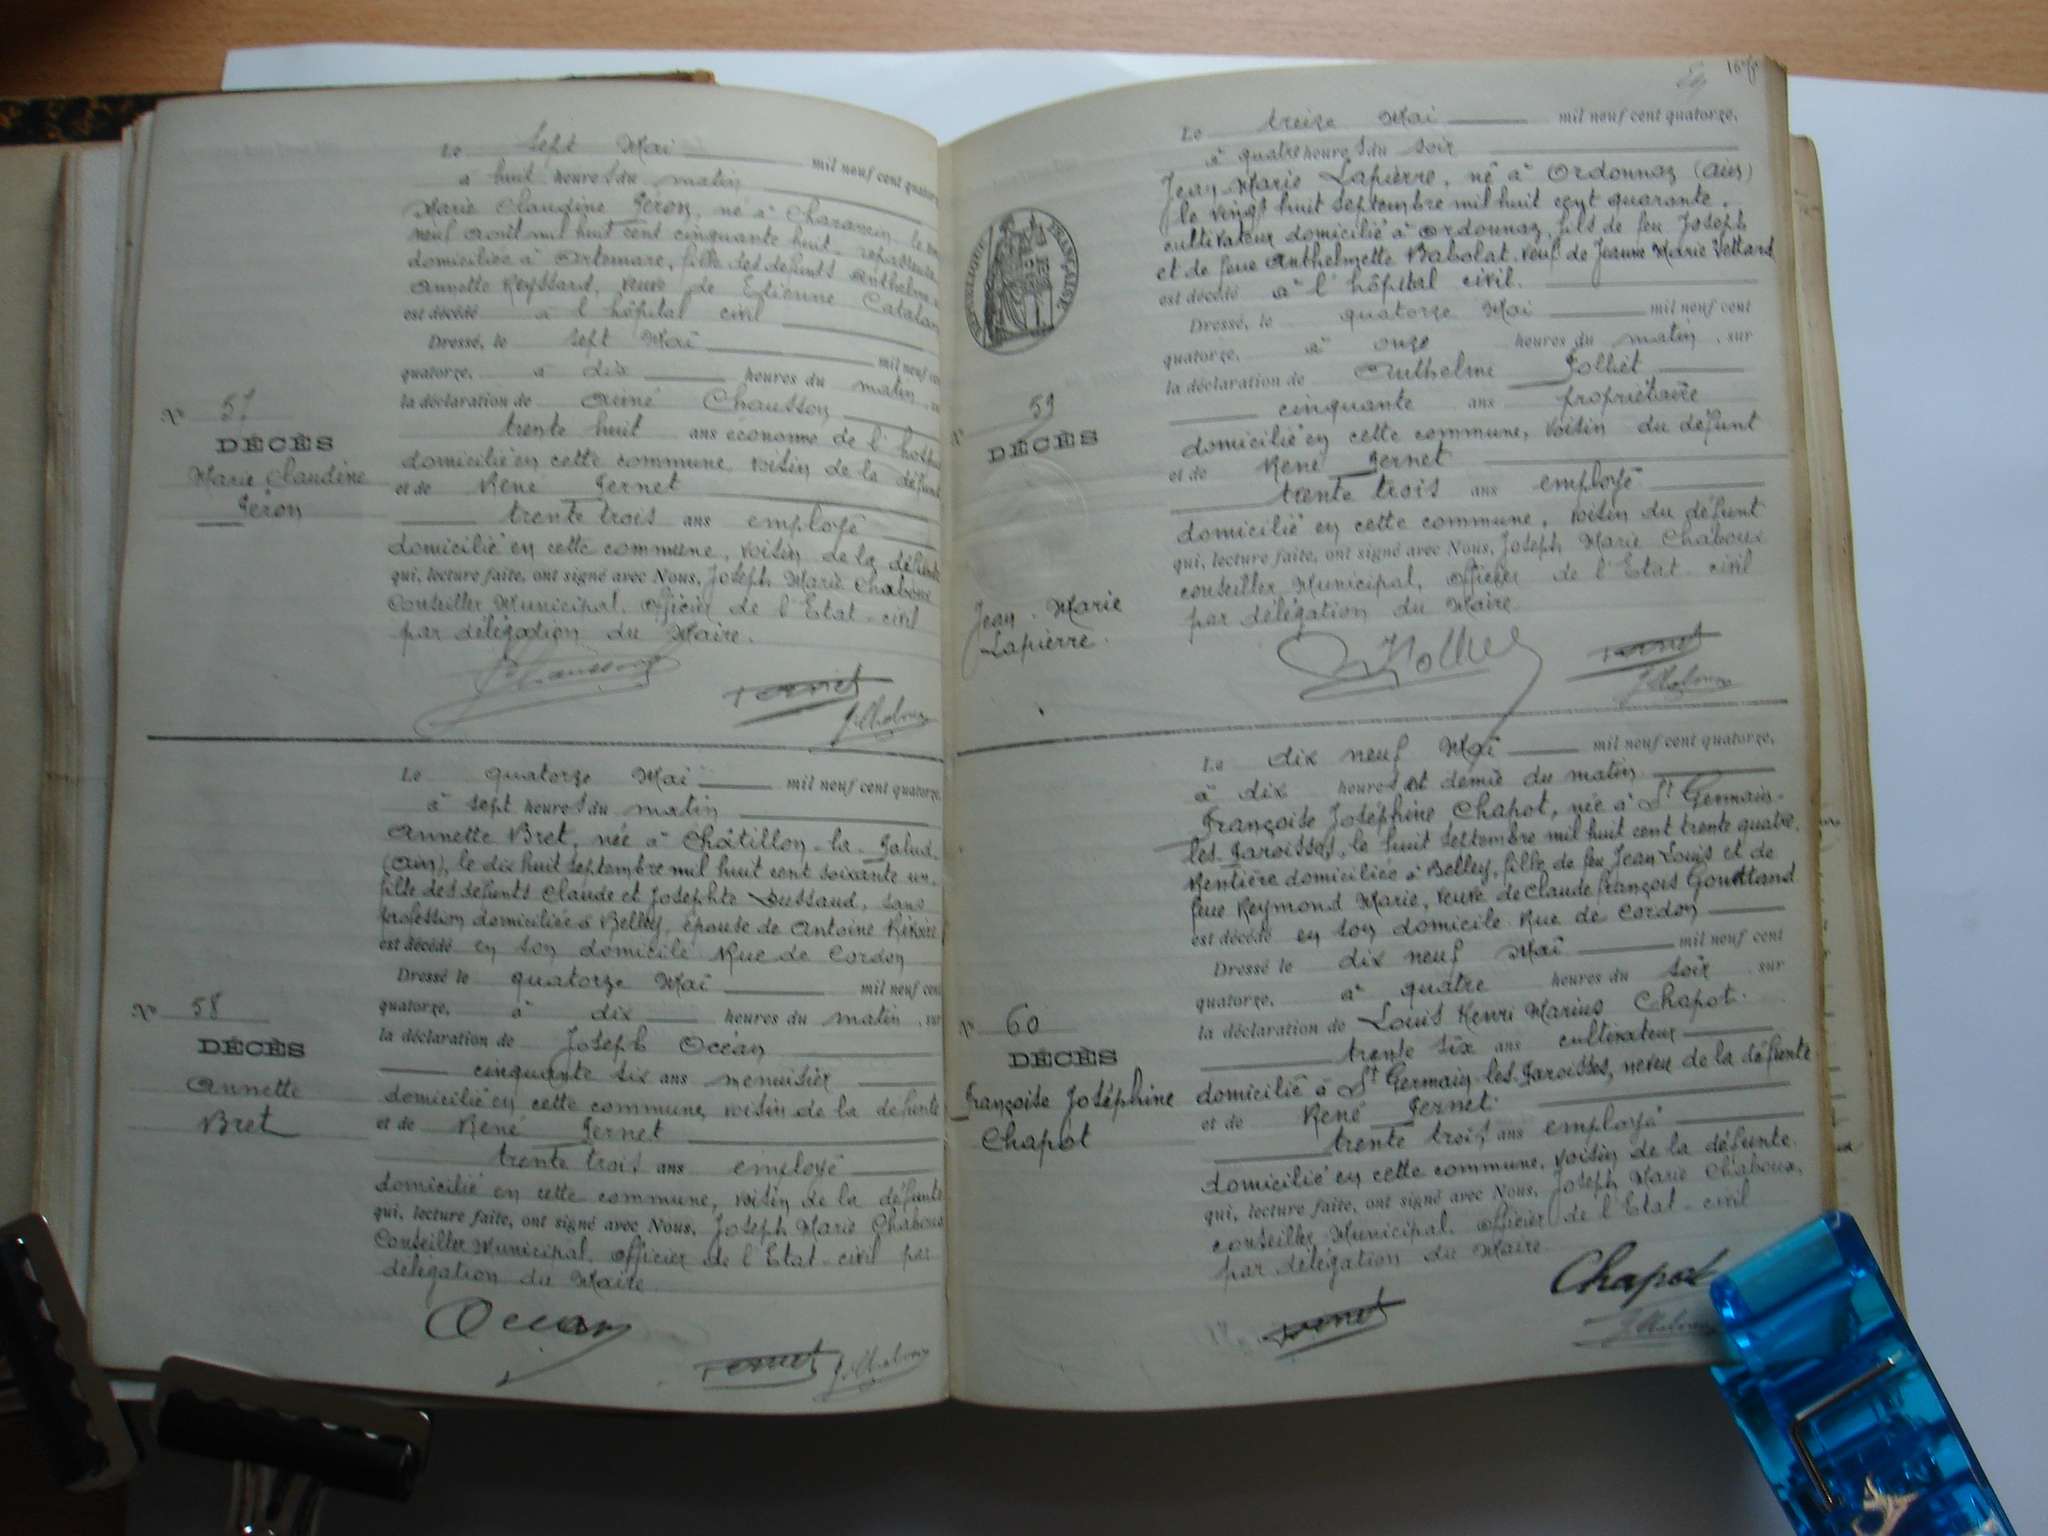 Le sept Mai mil neuf cent quatorze
à huit heures du matin
Marie Claudine Péron, né à Charancin, le
neuf août mil huit cent cinquante huit, repasseuse
domiciliée à Artemare, fille des defunts Anthelme
Annette Reyssard, veuve de Etienne Catalan
est décédé à l'hôpital civil
Dressé, le sept Mai mil neuf cent
quatorze, à dix heures du matin, sur
la déclaration de Aimé Chausson
trente huit ans économe de l'
domicilié en cette commune, voisin de la défunte
et de René Pernet
trente trois ans employé
domicilié en cette commune, voisin de la défunte
qui, lecture faite, ont signé avec Nous, Joseph Marie Chaboux
Conseiller Municipal, officier de l'Etat-civil
par délégation du Maire.
N° 57
DÉCÈS
Marie Claudine
Péron
Chausson
Pernet
J. Chaboux
Le quatorze Mai mil neuf cent quatorze,
à sept heures du matin
Annette Bret, née à Châtillon-la-Palud
(Ain), le dix huit septembre mil huit cent soixante un,
fille des defunts Claude et Josephte Dussaud, sans
profession domiciliée à Belley, épouse de Antoine
est décédé en son domicile Rue de Cordon
Dressé le quatorze Mai mil neuf cent
quatorze, à dix heures du matin, sur
la déclaration de Joseph Océan
cinquante six ans menuisier
domicilié en cette commune, voisin de la defunte
et de René Pernet
trente trois ans employé
domicilié en cette commune, voisin de la défunte
qui, lecture faite, ont signé avec Nous, Joseph Marie Chaboux
Conseiller Municipal, officier de l'Etat-civil par
délégation du Maire
N° 58
DÉCÈS
Annette
Bret
Océan
Pernet J. Chaboux
Le treize Mai mil neuf cent quatorze,
à quatre heures du soir
Jean Marie Lapierre, né à Ordonnaz (Ain)
le vingt huit septembre mil huit cent quarante,
cultivateur domicilié à Ordonnaz, fils de feu Joseph
et de feue Anthelmette Babolat, veuf de Jeanne Marie Vettard
est décédé à l'hôpital civil.
Dressé, le quatorze Mai mil neuf cent
quatorze, à onze heures du matin, sur
la déclaration de Anthelme Jolliet
cinquante ans propriétaire
domicilié en cette commune, voisin du défunt
et de René Pernet
trente trois ans employé
domicilié en cette commune, voisin du défunt
qui, lecture faite, ont signé avec Nous, Joseph Marie Chaboux
conseiller Municipal, officier de l'Etat-civil
par délégation du Maire
RÉPUBLIQUE FRANÇAISE
N° 59
DÉCÈS
Jean-Marie
Lapierre.
Pernet
J. Chaboux
Le dix neuf Mai mil neuf cent quatorze,
à dix heures et demie du matin
Françoise Joséphine Chapot, née à St Germain-
les-Paroisses, le huit septembre mil huit cent trente quatre,
Rentière domiciliée à Belley, fille de feu Jean Louis et de
feue Reymond Marie, veuve de Claude François
est décédé en son domicile Rue de Cordon
Dressé le dix neuf Mai mil neuf cent
quatorze, à quatre heures du soir sur
la déclaration de Louis Henri Marius Chapot
trente six ans cultivateur
domicilié à St Germain-les-Paroisses, neveu de la défunte
et de René Pernet
trente trois ans employé
domicilié en cette commune, voisin de la défunte.
qui, lecture faite, ont signé avec Nous, Joseph Marie Chaboux,
conseiller Municipal, officier de l'Etat-civil
par délégation du Maire
N° 60
DÉCÈS
Françoise Joséphine
Chapot
Chapot
Pernet
J. Chaboux